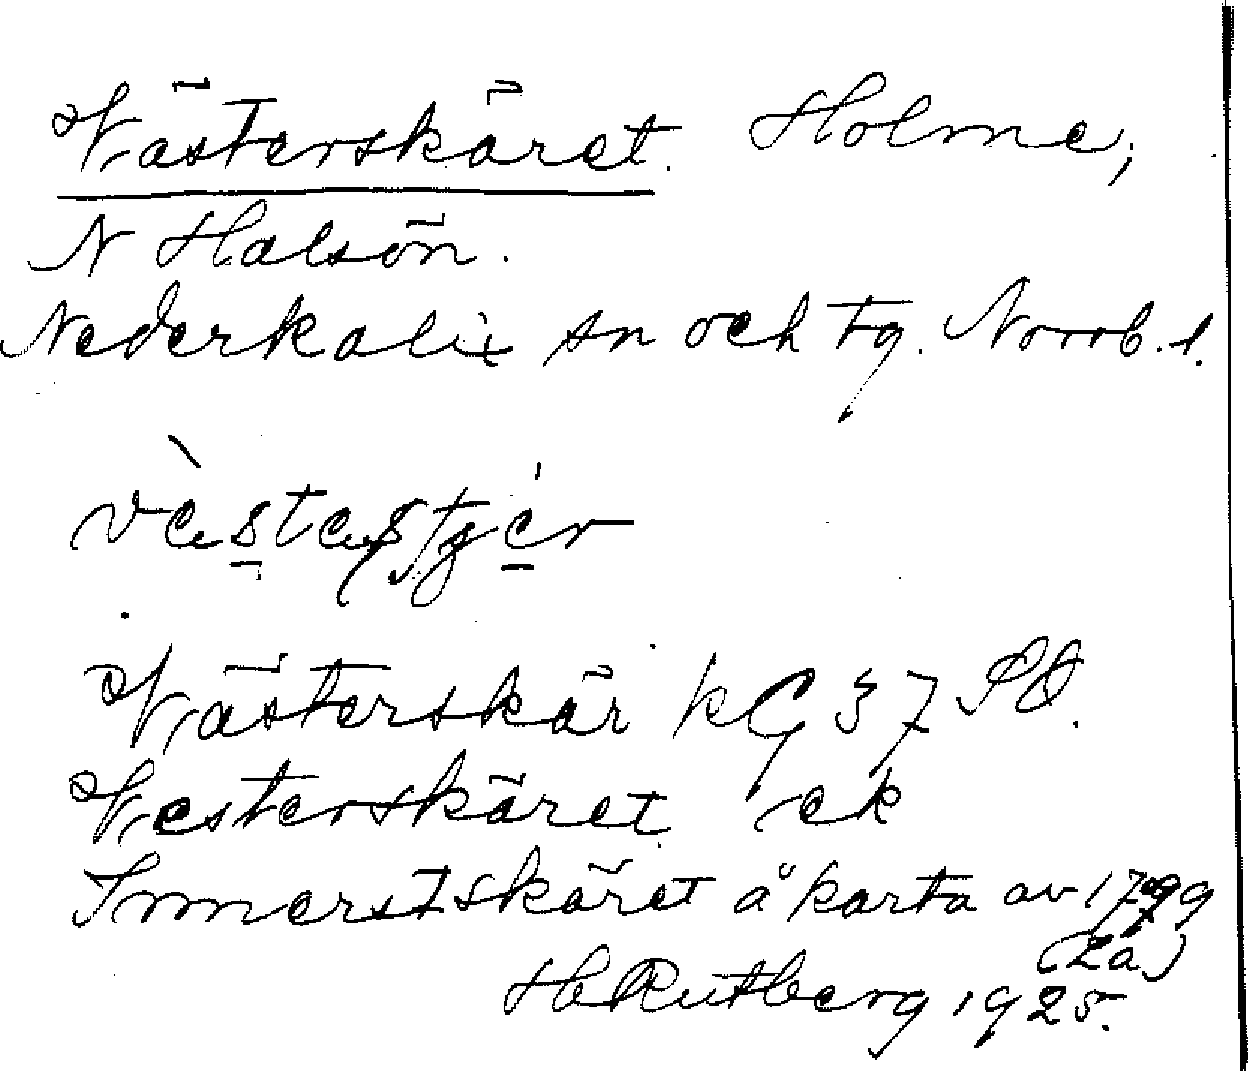 Västerskäret. Holme,
N Halsön.
Nederkalix sn och tg. Norrb. l.
Västerskär kG 37 SO.
Westerskäret ek
Innerstskäret å karta av 1799
(Lä)
H Rutberg 1925.